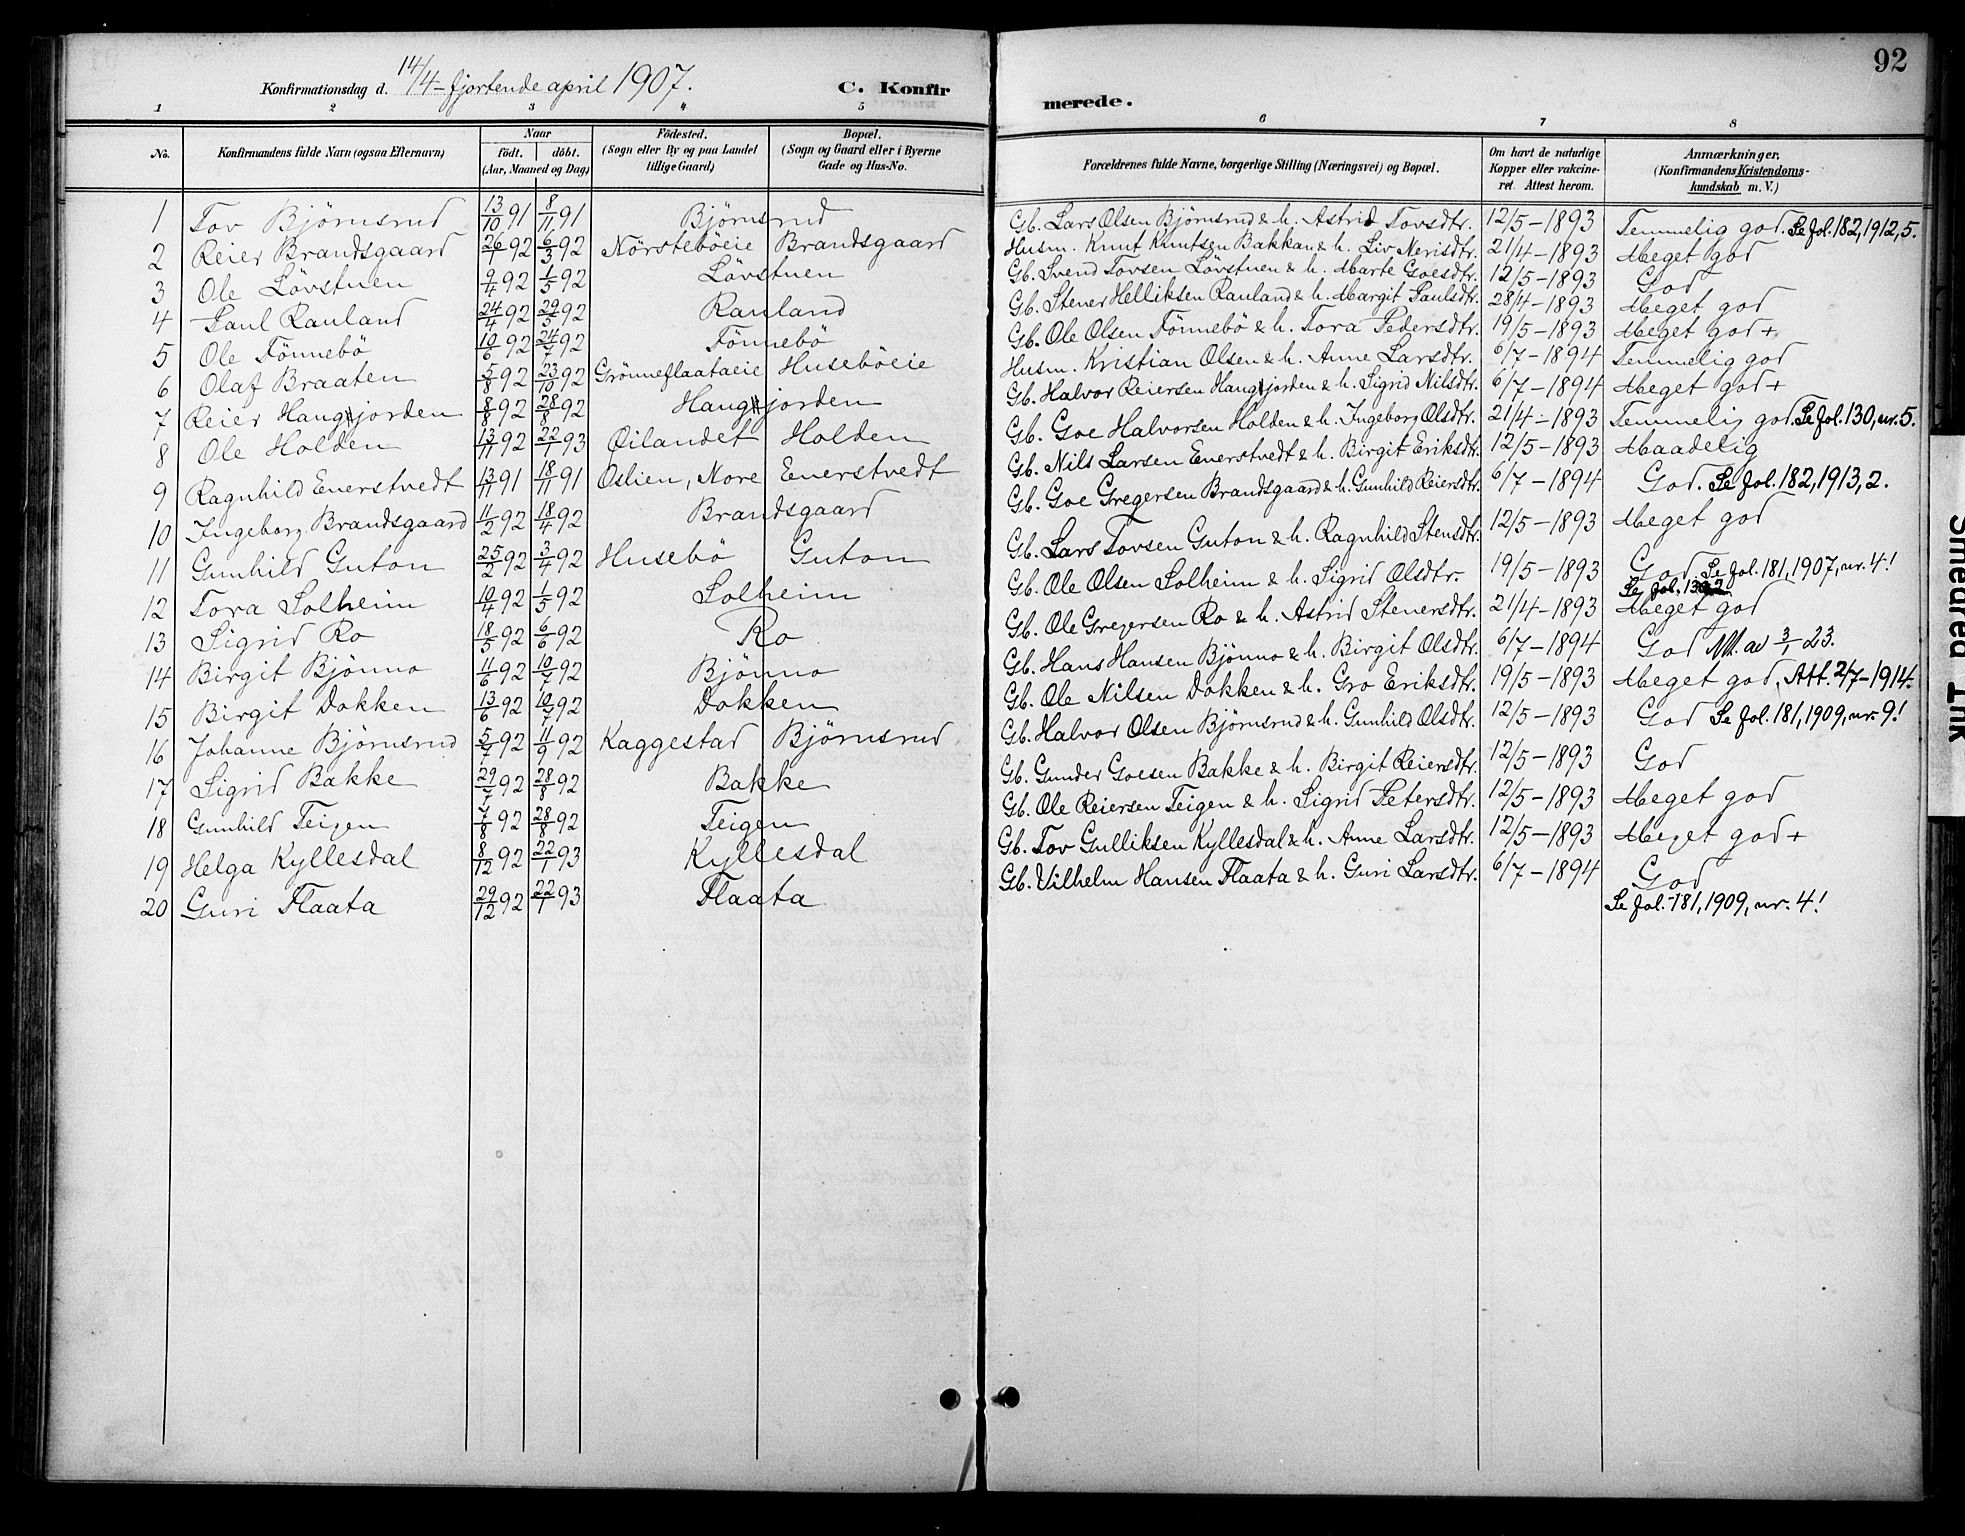 92
Konfirmationsdag d. 14/4 - fjortende april 1907.
C. Konfirmerede.
1 2 3 4 5 6 7 8
No. | Konfirmandens fulde Navn (ogsaa Efternavn) | Naar födt. döbt. (Aar, Maaned og Dag) | Födested. (Sogn eller By og paa Landet tillige Gaard) | Bopæl. (Sogn og Gaard eller i Byerne Gade og Hus-No. | Forældrenes fulde Navne, borgerlige Stilling (Næringsvei) og Bopæl. | Om havt de naturlige Kopper eller vakcineret. Attest herom. | Anmærkninger. (Konfirmandens Kristendomskundskab m. V.)
1 Tov Björnsrud 13/10 91 8/11 91 Björnsrud Gb. Lars Olsen Björnsrud & h. Astrid Tovsdtr. 12/5-1893 Temmelig god. Se fol. 182, 1912, 5.
2 Reier Brandsgaard 26/1 92 6/3 92 Nörsteböeie Brandsgaard Husm. Knut Knutsen Bakkan & h. Liv Nerisdtr. 21/4-1893 Meget god
3 Ole Lövstuen 9/4 92 1/5 92 Lövstuen Gb. Svend Tovsen Lövstuen & h. Marte Goesdtr. 12/5-1893 God
4 Paul Rauland 24/4 92 29/5 92 Rauland Gb. Stener Helliksen Rauland & h. Margit Paulsdtr. 28/4-1893 Meget god
5 Ole Fönnebö 10/6 92 24/7 92 Fönnebö Gb. Ole Olsen Fönnebö & h. Tora Pedersdtr. 19/5-1893 Meget god +
6 Olaf Braaten 5/8 92 23/10 92 Grönneflaataeie Huseböeie Husm. Kristian Olsen & h. Anne Larsdtr. 6/7-1894 Temmelig god
7 Reier Haugjorden 8/8 92 28/8 92 Haugjorden Gb. Halvor Reiersen Haugjorden & h. Sigrid Nilsdtr. 6/7-1894 Meget god +
8 Ole Holden 13/11 92 22/1 93 Öilandet Holden Gb. Goe Halvorsen Holden & h. Ingeborg Olsdtr. 21/4-1893 Temmelig god. Se fol. 130, nr. 5.
9 Ragnhild Enerstvedt 13/11 91 18/11 91 Oslien, Nore Enerstvedt Gb. Nils Larsen Enerstvedt & h. Birgit Eriksdtr. 12/5-1893 Maadelig
10 Ingeborg Brandsgaard 11/2 92 18/4 92 Brandsgaard Gb. Goe Gregersen Brandsgaard & h. Gunhild Reiersdtr. 6/7-1894 God. Se fol. 182, 1913, 2.
11 Gunhild Guton 25/2 92 3/4 92 Husebö Guton Gb. Lars Tovsen Guton & h. Ragnhild Stensdtr. 12/5-1893 Meget god
12 Tora Solheim 10/4 92 1/5 92 Solheim Gb. Ole Olsen Solheim & h. Sigrid Olsdtr. 19/5-1893 God. Se fol. 181, 1907, nr. 4!
13 Sigrid Ro 18/5 92 6/6 92 Ro Gb. Ole Gregersen Ro & h. Astrid Stenersdtr. 21/4-1893 Se fol. Meget god
14 Birgit Bjönno 11/6 92 10/7 92 Bjönno Gb. Hans Hansen Bjönno & h. Birgit Olsdtr. 6/7-1894 God Att. av 3/1 23.
15 Birgit Dokken 13/6 92 10/7 92 Dokken Gb. Ole Nilsen Dokken & h. Gro Eriksdtr. 19/5-1893 Meget god. Att. 2/7-1914.
16 Johanne Björnsrud 5/7 92 11/9 92 Kaggestad Björnsrud Gb. Halvor Olsen Björnsrud & h. Gunhild Olsdtr. 12/5-1893 God Se fol. 181, 1909, nr. 9!
17 Sigrid Bakke 29/7 92 28/8 92 Bakke Gb. Gunder Goesen Bakke & h. Birgit Reiersdtr. 12/5-1893 God
18 Gunhild Teigen 7/8 92 28/8 92 Teigen Gb. Ole Reiersen Teigen & h. Sigrid Petersdtr. 12/5-1893 Meget god
19 Helga Kyllesdal 8/12 92 22/1 93 Kyllesdal Gb. Tov Gulliksen Kyllesdal & h. Anne Larsdtr. 12/5-1893 Meget god +
20 Guri Flaata 29/12 92 22/1 93 Flaata Gb. Vilhelm Hansen Flaata & h. Guri Larsdtr. 6/7-1894 God
Se fol. 181, 1909, nr. 4!
Smeared Ink